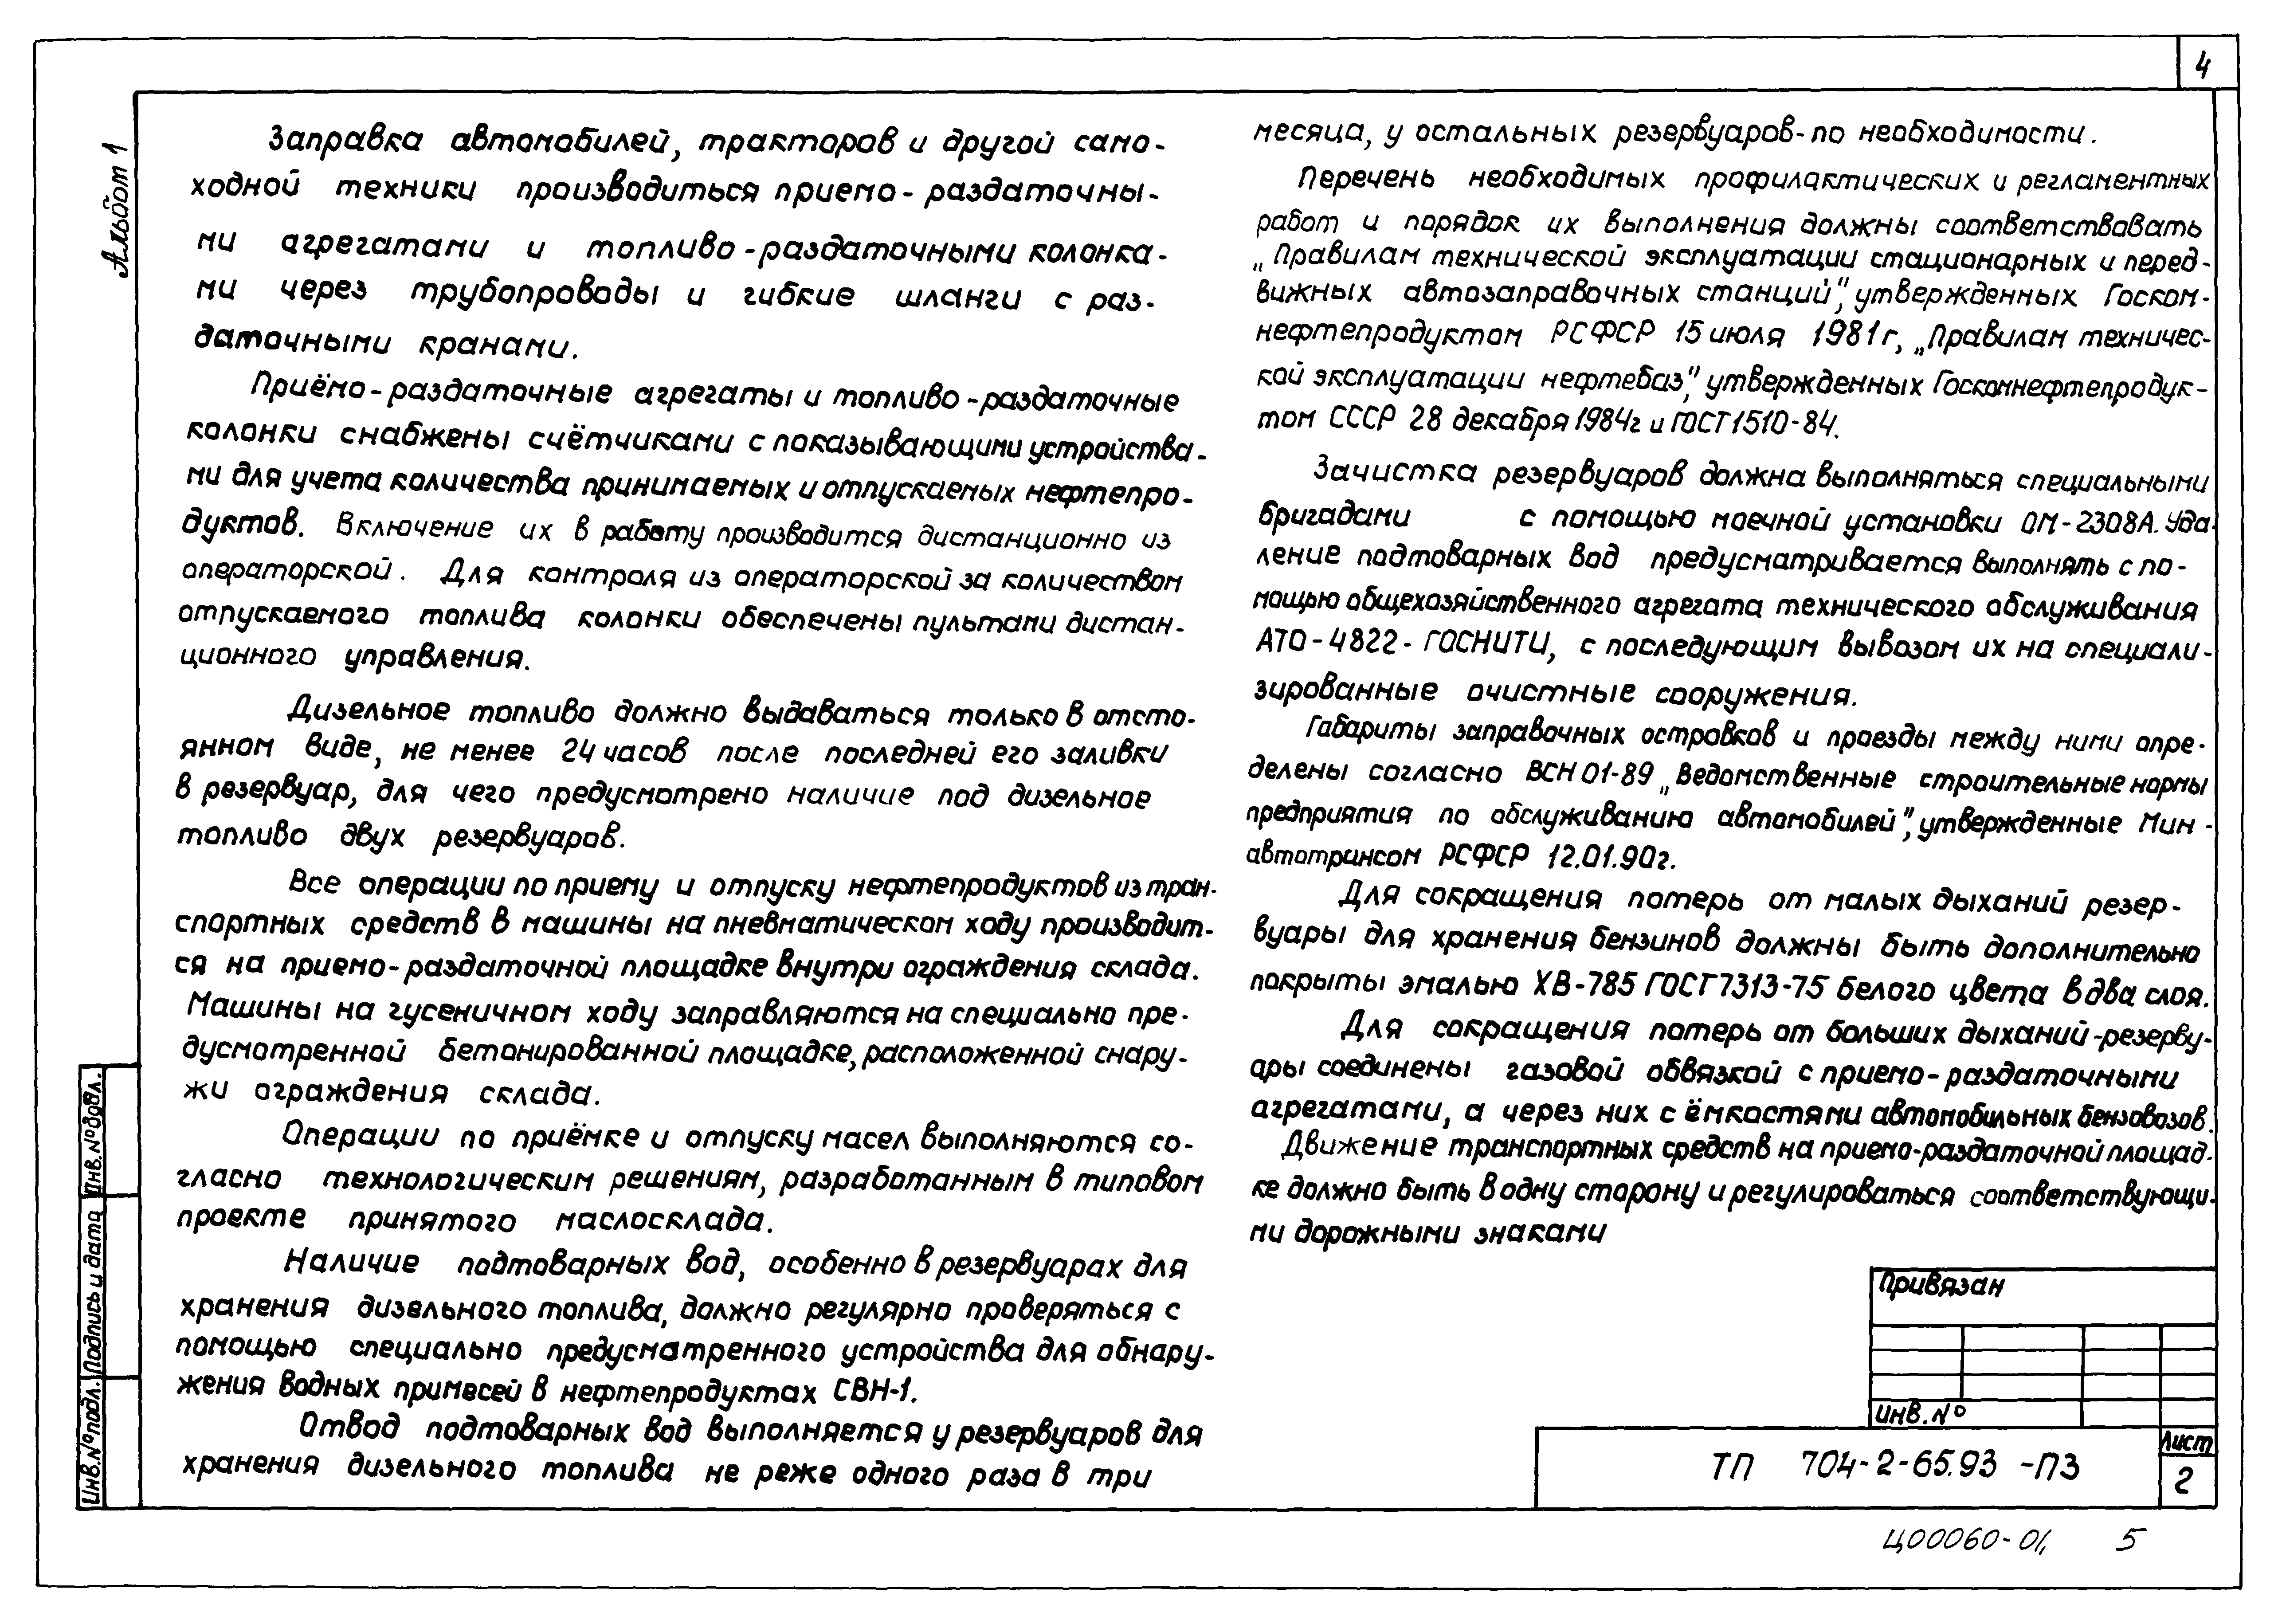 4
Альбом 1
Заправка автомобилей, тракторов и другой само-
ходной техники производиться приемо-раздаточны-
ми агрегатами и топливо-раздаточными колонка-
ми через трубопроводы и гибкие шланги с раз-
даточными кранами.
Приёмо-раздаточные агрегаты и топливо-раздаточные
колонки снабжены счётчиками с показывающими устройства-
ми для учета количества принимаемых и отпускаемых нефтепро-
дуктов. Включение их в работу производится дистанционно из
операторской. Для контроля из операторской за количеством
отпускаемого топлива колонки обеспечены пультами дистан-
ционного управления.
Дизельное топливо должно выдаваться только в отсто-
янном виде, не менее 24 часов после последней его заливки
в резервуар, для чего предусмотрено наличие под дизельное
топливо двух резервуаров.
Все операции по приему и отпуску нефтепродуктов из тран-
спортных средств в машины на пневматическом ходу производит-
ся на приемо-раздаточной площадке внутри ограждения склада.
Машины на гусеничном ходу заправляются на специально пре-
дусмотренной бетонированной площадке, расположенной снару-
жи ограждения склада.
Операции по приёмке и отпуску масел выполняются со-
гласно технологическим решениям, разработанным в типовом
проекте принятого маслосклада.
Наличие подтоварных вод, особенно в резервуарах для
хранения дизельного топлива, должно регулярно проверяться с
помощью специально предусматренного устройства для обнару-
жения водных примесей в нефтепродуктах СВН-1.
Отвод подтоварных вод выполняется у резервуаров для
хранения дизельного топлива не реже одного раза в три
месяца, у остальных резервуаров-по необходимости.
Перечень необходимых профилактических и регламентных
работ и порядок их выполнения должны соответствовать
„Правилам технической эксплуатации стационарных и перед-
вижных автозаправочных станций", утвержденных Госком-
нефтепродуктом РСФСР 15 июля 1981г, „Правилам техничес-
кой эксплуатации нефтебаз", утвержденных Госкомнефтепродук-
том СССР 28 декабря 1984г и ГОСТ 1510-84.
Зачистка резервуаров должна выполняться специальными
бригадами с помощью моечной установки ОМ-2308А. Уда-
ление подтоварных вод предусматривается выполнять с по-
мощью общехозяйственного агрегата технического обслуживания
АТО-4822-ГОСНИТИ, с последующим вывозом их на специали-
зированные очистные сооружения.
Габариты заправочных островков и проезды между ними опре-
делены согласно ВСН 01-89 „Ведомственные строительные нормы
предприятия по обслуживанию автомобилей", утвержденные Мин-
автотрансом РСФСР 12.01.90г.
Для сокращения потерь от малых дыханий резер-
вуары для хранения бензинов должны быть дополнительно
покрыты эмалью ХВ-785 ГОСТ 7313-75 белого цвета в два слоя.
Для сокращения потерь от больших дыханий-резерву-
ары соединены газовой обвязкой с приемо-раздаточными
агрегатами, а через них с ёмкостями автомобильных бензовозов.
Движение транспортных средств на приемо-раздаточной площад-
ке должно быть в одну сторону и регулироваться соответствующи-
ми дорожными знаками
Привязан
Инв.№
ТП 704-2-65.93 -ПЗ
Лист
2
Инв.№дубл.
Подпись и дата
Инв.№подл.
Ц00060-01, 5